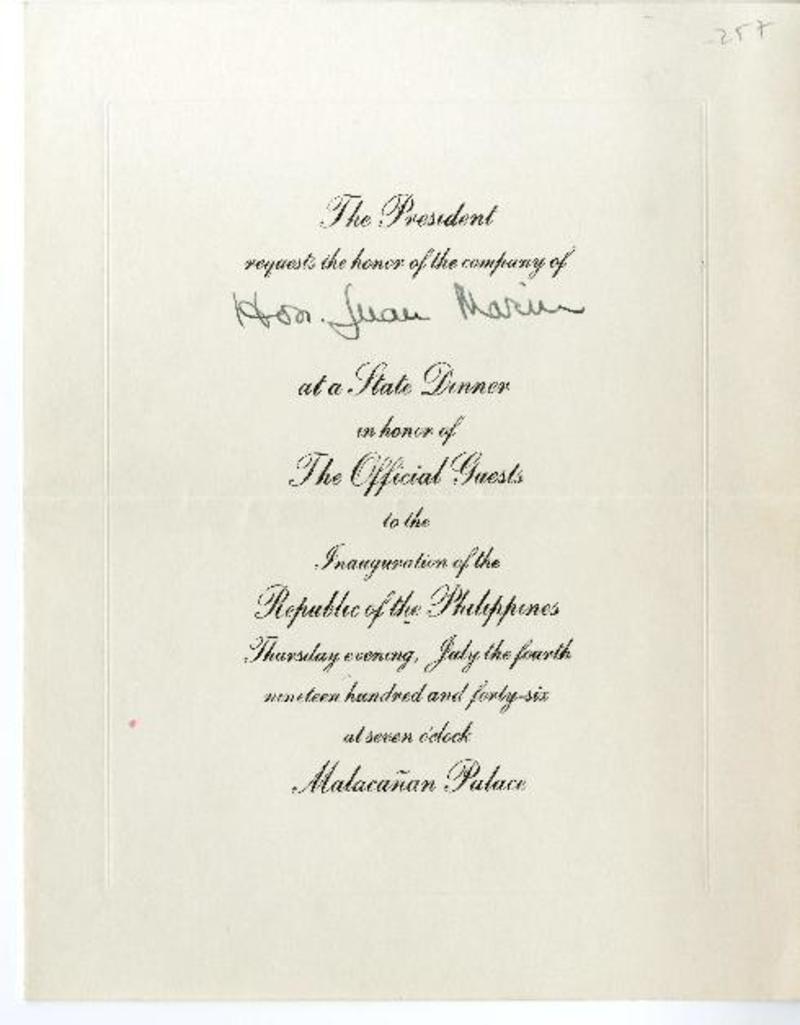 257
The President
requests the honor of the company of
Hon. Juan Marin
at a State Dinner
in honor of
The Official Guests
to the
Inauguration of the
Republic of the Philippines
Thursday evening, July the fourth
nineteen hundred and forty-six
at seven o'clock
Malacañan Palace